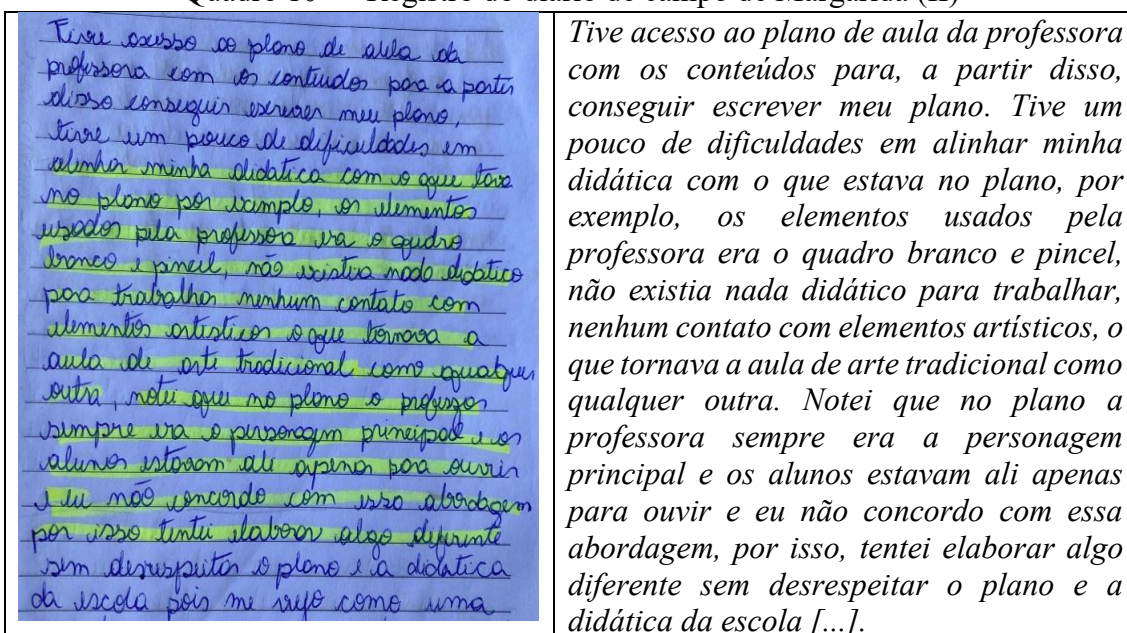 Quadro 10 – Registro do diário de campo de Margarida (II)
Tive acesso ao plano de aula da
professora com os contiudos para a partir
disso conseguir escrever meu plano,
tive um pouco de dificuldades em
alinhar minha didatica com o que tava
no plano por exemplo, os elementos
usados pela professora era o quadro
branco e pincel, não existia nada didatico
para trabalhar nenhum contato com
elementos artisticos o que tornava a
aula de arte tradicional como qualquer
outra, notei que no plano o professor
sempre era o personagem principal e os
alunos estavam ali apenas para ouvir
e eu não concordo com essa abordagem
por isso tentei elaborar algo diferente
sem desrespeitar o plano e a didatica
da escola pois me vejo como uma
Tive acesso ao plano de aula da professora
com os conteúdos para, a partir disso,
conseguir escrever meu plano. Tive um
pouco de dificuldades em alinhar minha
didática com o que estava no plano, por
exemplo, os elementos usados pela
professora era o quadro branco e pincel,
não existia nada didático para trabalhar,
nenhum contato com elementos artísticos, o
que tornava a aula de arte tradicional como
qualquer outra. Notei que no plano a
professora sempre era a personagem
principal e os alunos estavam ali apenas
para ouvir e eu não concordo com essa
abordagem, por isso, tentei elaborar algo
diferente sem desrespeitar o plano e a
didática da escola [...].